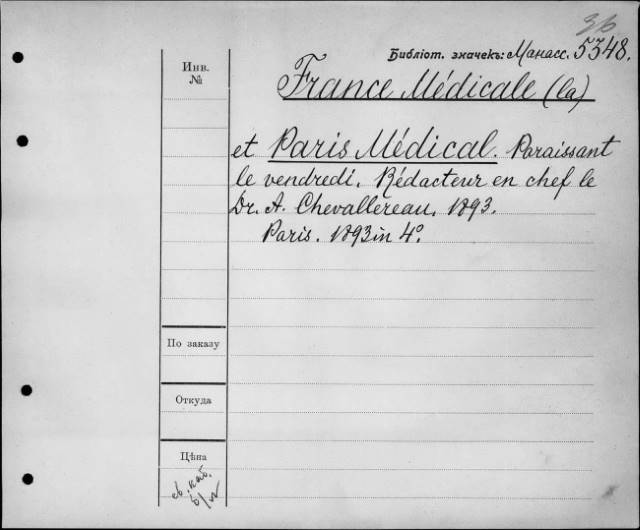 36
Библіот. значекъ: Манасс. 5348.
Инв.
№
France Médicale (la)
et Paris Médical. Paraissant
le vendredi. Rédacteur en chef le
Dr. A. Chevallereau. 1893.
Paris. 1893 in 4°.
По заказу
Откуда
Цѣна
св. каб.
б/ц